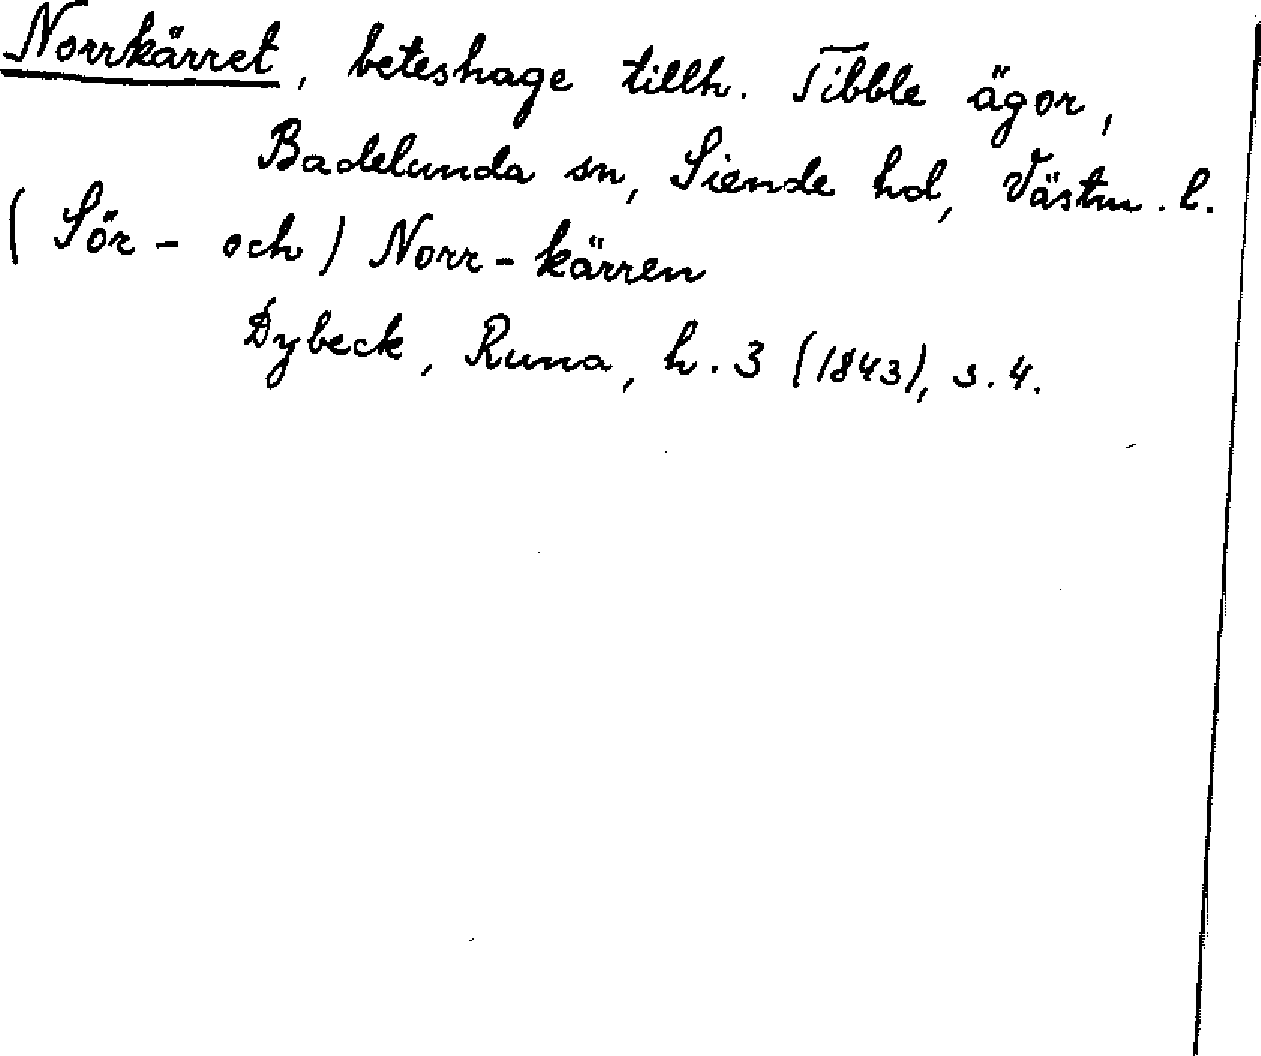 Norrkärret, beteshage tillh. Tibble ägor,
Badelunda sn, Siende hd, Västm. l.
(Sör- och) Norr-kärren
Dybeck, Runa, h. 3 (1843), s. 4.